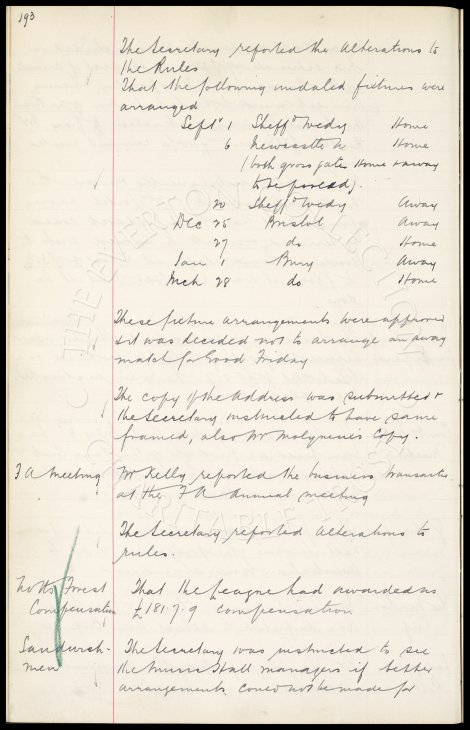 193
The Secretary reported the Alterations to
the Rules
That the following undated fixtures were
arranged
Septr 1 Sheffd Wedy Home
6 Newcastle U Home
(both gross gates Home & away
to be pooled).
20 Sheffd Wedy Away
Dec 25 Bristol Away
27 do Home
Jan 1 Bury Away
Mch 28 do Home
These fixture arrangements were approved
& it was decided not to arrange an away
match for Good Friday
The copy of the Address was submitted &
the Secretary instructed to have same
framed, also Mr Molyneux's Copy.
F A Meeting Mr Kelly reported the business transacted
at the F A Annual meeting
The Secretary reported Alterations to
rules.
Notts Forest That the League had awarded us
Compensation £181.7.9 compensation
Sandwich- The Secretary was instructed to see
men the Music Hall managers if better
arrangements could not be made for
THE EVERTON COLLECTION
CHARITABLE TRUST